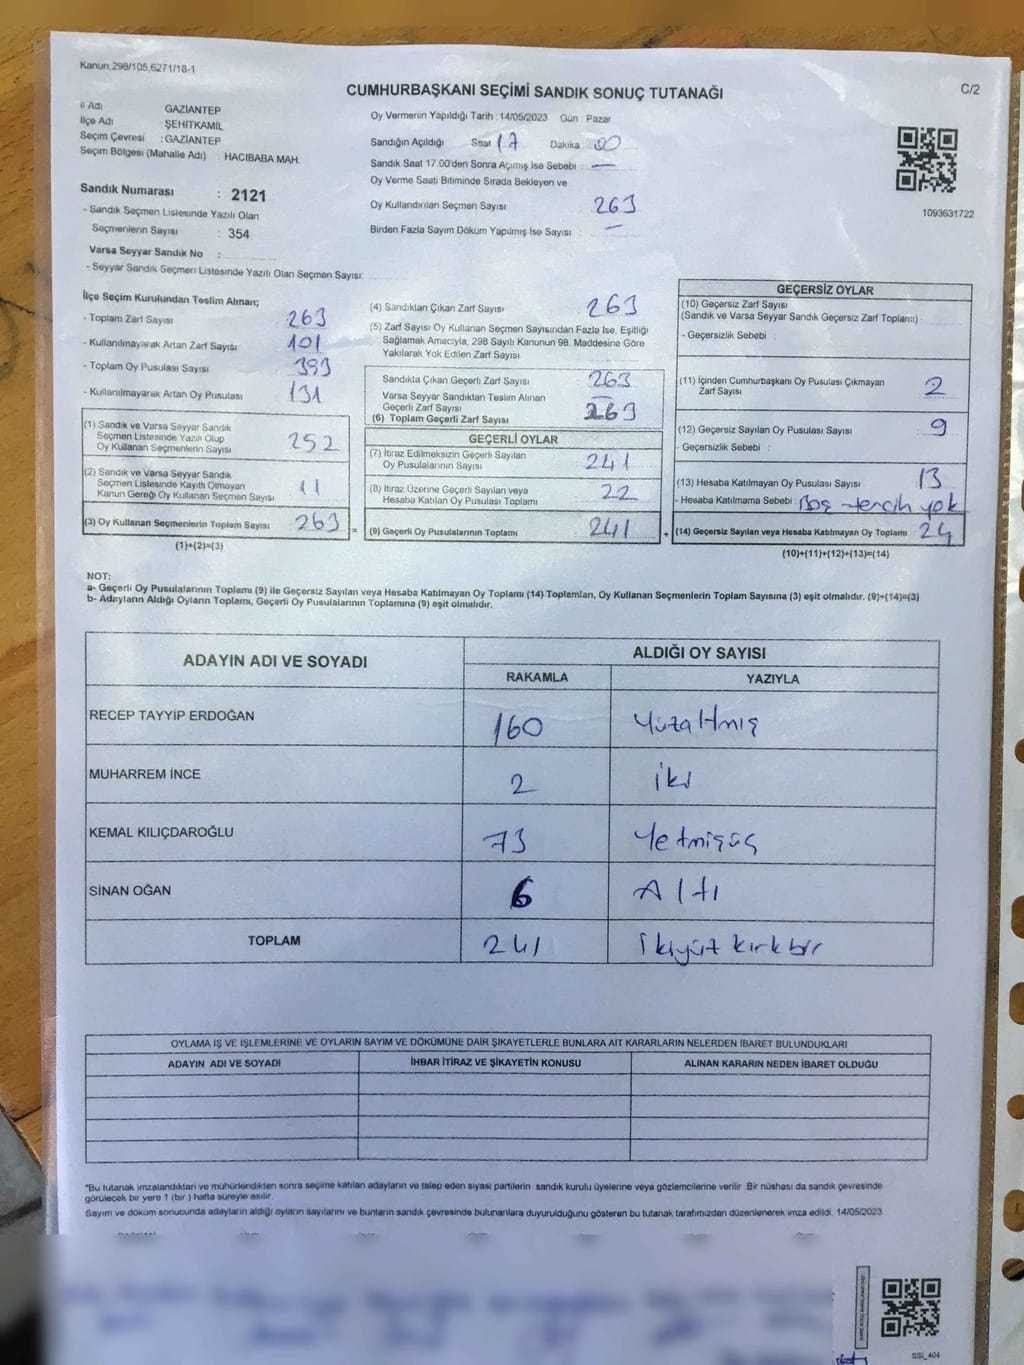 Kanun:298/105,6271/18-1
CUMHURBAŞKANI SEÇİMİ SANDIK SONUÇ TUTANAĞI
C/2
İl Adı GAZİANTEP
İlçe Adı : ŞEHİTKAMİL
Seçim Çevresi : GAZİANTEP
Seçim Bölgesi (Mahalle Adı) : HACIBABA MAH.
Oy Vermenin Yapıldığı Tarih : 14/05/2023 Gün Pazar
Sandığın Açıldığı Saat 17 Dakika 00
Sandık Saat 17.00'den Sonra Açımış İse Sebebi : —
Oy Verme Saati Bitiminde Sırada Bekleyen ve
Oy Kullandırılan Seçmen Sayısı 263
Birden Fazla Sayım Döküm Yapılmış İse Sayısı : —
1093631722
Sandık Numarası : 2121
- Sandık Seçmen Listesinde Yazılı Olan
Seçmenlerin Sayısı : 354
Varsa Seyyar Sandık No :
- Seyyar Sandık Seçmen Listesinde Yazılı Olan Seçmen Sayısı:
İlçe Seçim Kurulundan Teslim Alınan;
- Toplam Zarf Sayısı 263
- Kullanılmayarak Artan Zarf Sayısı 101
- Toplam Oy Pusulası Sayısı 393
- Kullanılmayarak Artan Oy Pusulası 131
(1) Sandık ve Varsa Seyyar Sandık
Seçmen Listesinde Yazılı Olup
Oy Kullanan Seçmenlerin Sayısı 252
(2) Sandık ve Varsa Seyyar Sandık
Seçmen Listesinde Kayıtlı Olmayan
Kanun Gereği Oy Kullanan Seçmen Sayısı 11
(3) Oy Kullanan Seçmenlerin Toplam Sayısı 263 =
(1)+(2)=(3)
(4) Sandıktan Çıkan Zarf Sayısı 263
(5) Zarf Sayısı Oy Kullanan Seçmen Sayısından Fazla İse, Eşitliği
Sağlamak Amacıyla, 298 Sayılı Kanunun 98. Maddesine Göre
Yakılarak Yok Edilen Zarf Sayısı
Sandıkta Çıkan Geçerli Zarf Sayısı 263
Varsa Seyyar Sandıktan Teslim Alınan
Geçerli Zarf Sayısı —
(6) Toplam Geçerli Zarf Sayısı 263
GEÇERLİ OYLAR
(7) İtiraz Edilmeksizin Geçerli Sayılan
Oy Pusulalarının Sayısı 241
(8) İtiraz Üzerine Geçerli Sayılan veya
Hesaba Katılan Oy Pusulası Toplamı 22
(9) Geçerli Oy Pusulalarının Toplamı 241 +
GEÇERSİZ OYLAR
(10) Geçersiz Zarf Sayısı
(Sandık ve Varsa Seyyar Sandık Geçersiz Zarf Toplamı) :
- Geçersizlik Sebebi :
(11) İçinden Cumhurbaşkanı Oy Pusulası Çıkmayan
Zarf Sayısı 2
(12) Geçersiz Sayılan Oy Pusulası Sayısı 9
- Geçersizlik Sebebi :
(13) Hesaba Katılmayan Oy Pusulası Sayısı 13
- Hesaba Katılmama Sebebi : Boş tercih yok
(14) Geçersiz Sayılan veya Hesaba Katılmayan Oy Toplamı 24
(10)+(11)+(12)+(13)=(14)
NOT:
a- Geçerli Oy Pusulalarının Toplamı (9) ile Geçersiz Sayılan veya Hesaba Katılmayan Oy Toplamı (14) Toplamları, Oy Kullanan Seçmenlerin Toplam Sayısına (3) eşit olmalıdır. (9)+(14)=(3)
b- Adayların Aldığı Oyların Toplamı, Geçerli Oy Pusulalarının Toplamına (9) eşit olmalıdır.
ADAYIN ADI VE SOYADI
ALDIĞI OY SAYISI
RAKAMLA YAZIYLA
RECEP TAYYİP ERDOĞAN 160 Yüzaltmış
MUHARREM İNCE 2 iki
KEMAL KILIÇDAROĞLU 73 Yetmişüç
SİNAN OĞAN 6 Altı
TOPLAM 241 İkiyüz kırkbir
OYLAMA İŞ VE İŞLEMLERİNE VE OYLARIN SAYIM VE DÖKÜMÜNE DAİR ŞİKAYETLERLE BUNLARA AİT KARARLARIN NELERDEN İBARET BULUNDUKLARI
ADAYIN ADI VE SOYADI İHBAR İTİRAZ VE ŞİKAYETİN KONUSU ALINAN KARARIN NEDEN İBARET OLDUĞU
*Bu tutanak imzalandıktan ve mühürlendikten sonra seçime katılan adayların ve talep eden siyasi partilerin sandık kurulu üyelerine veya gözlemcilerine verilir. Bir nüshası da sandık çevresinde
görülecek bir yere 1 (bir ) hafta süreyle asılır.
Sayım ve döküm sonucunda adayların aldığı oyların sayılarını ve bunların sandık çevresinde bulunanlara duyurulduğunu gösteren bu tutanak tarafımızdan düzenlenerek imza edildi. 14/05/2023
SSI_404